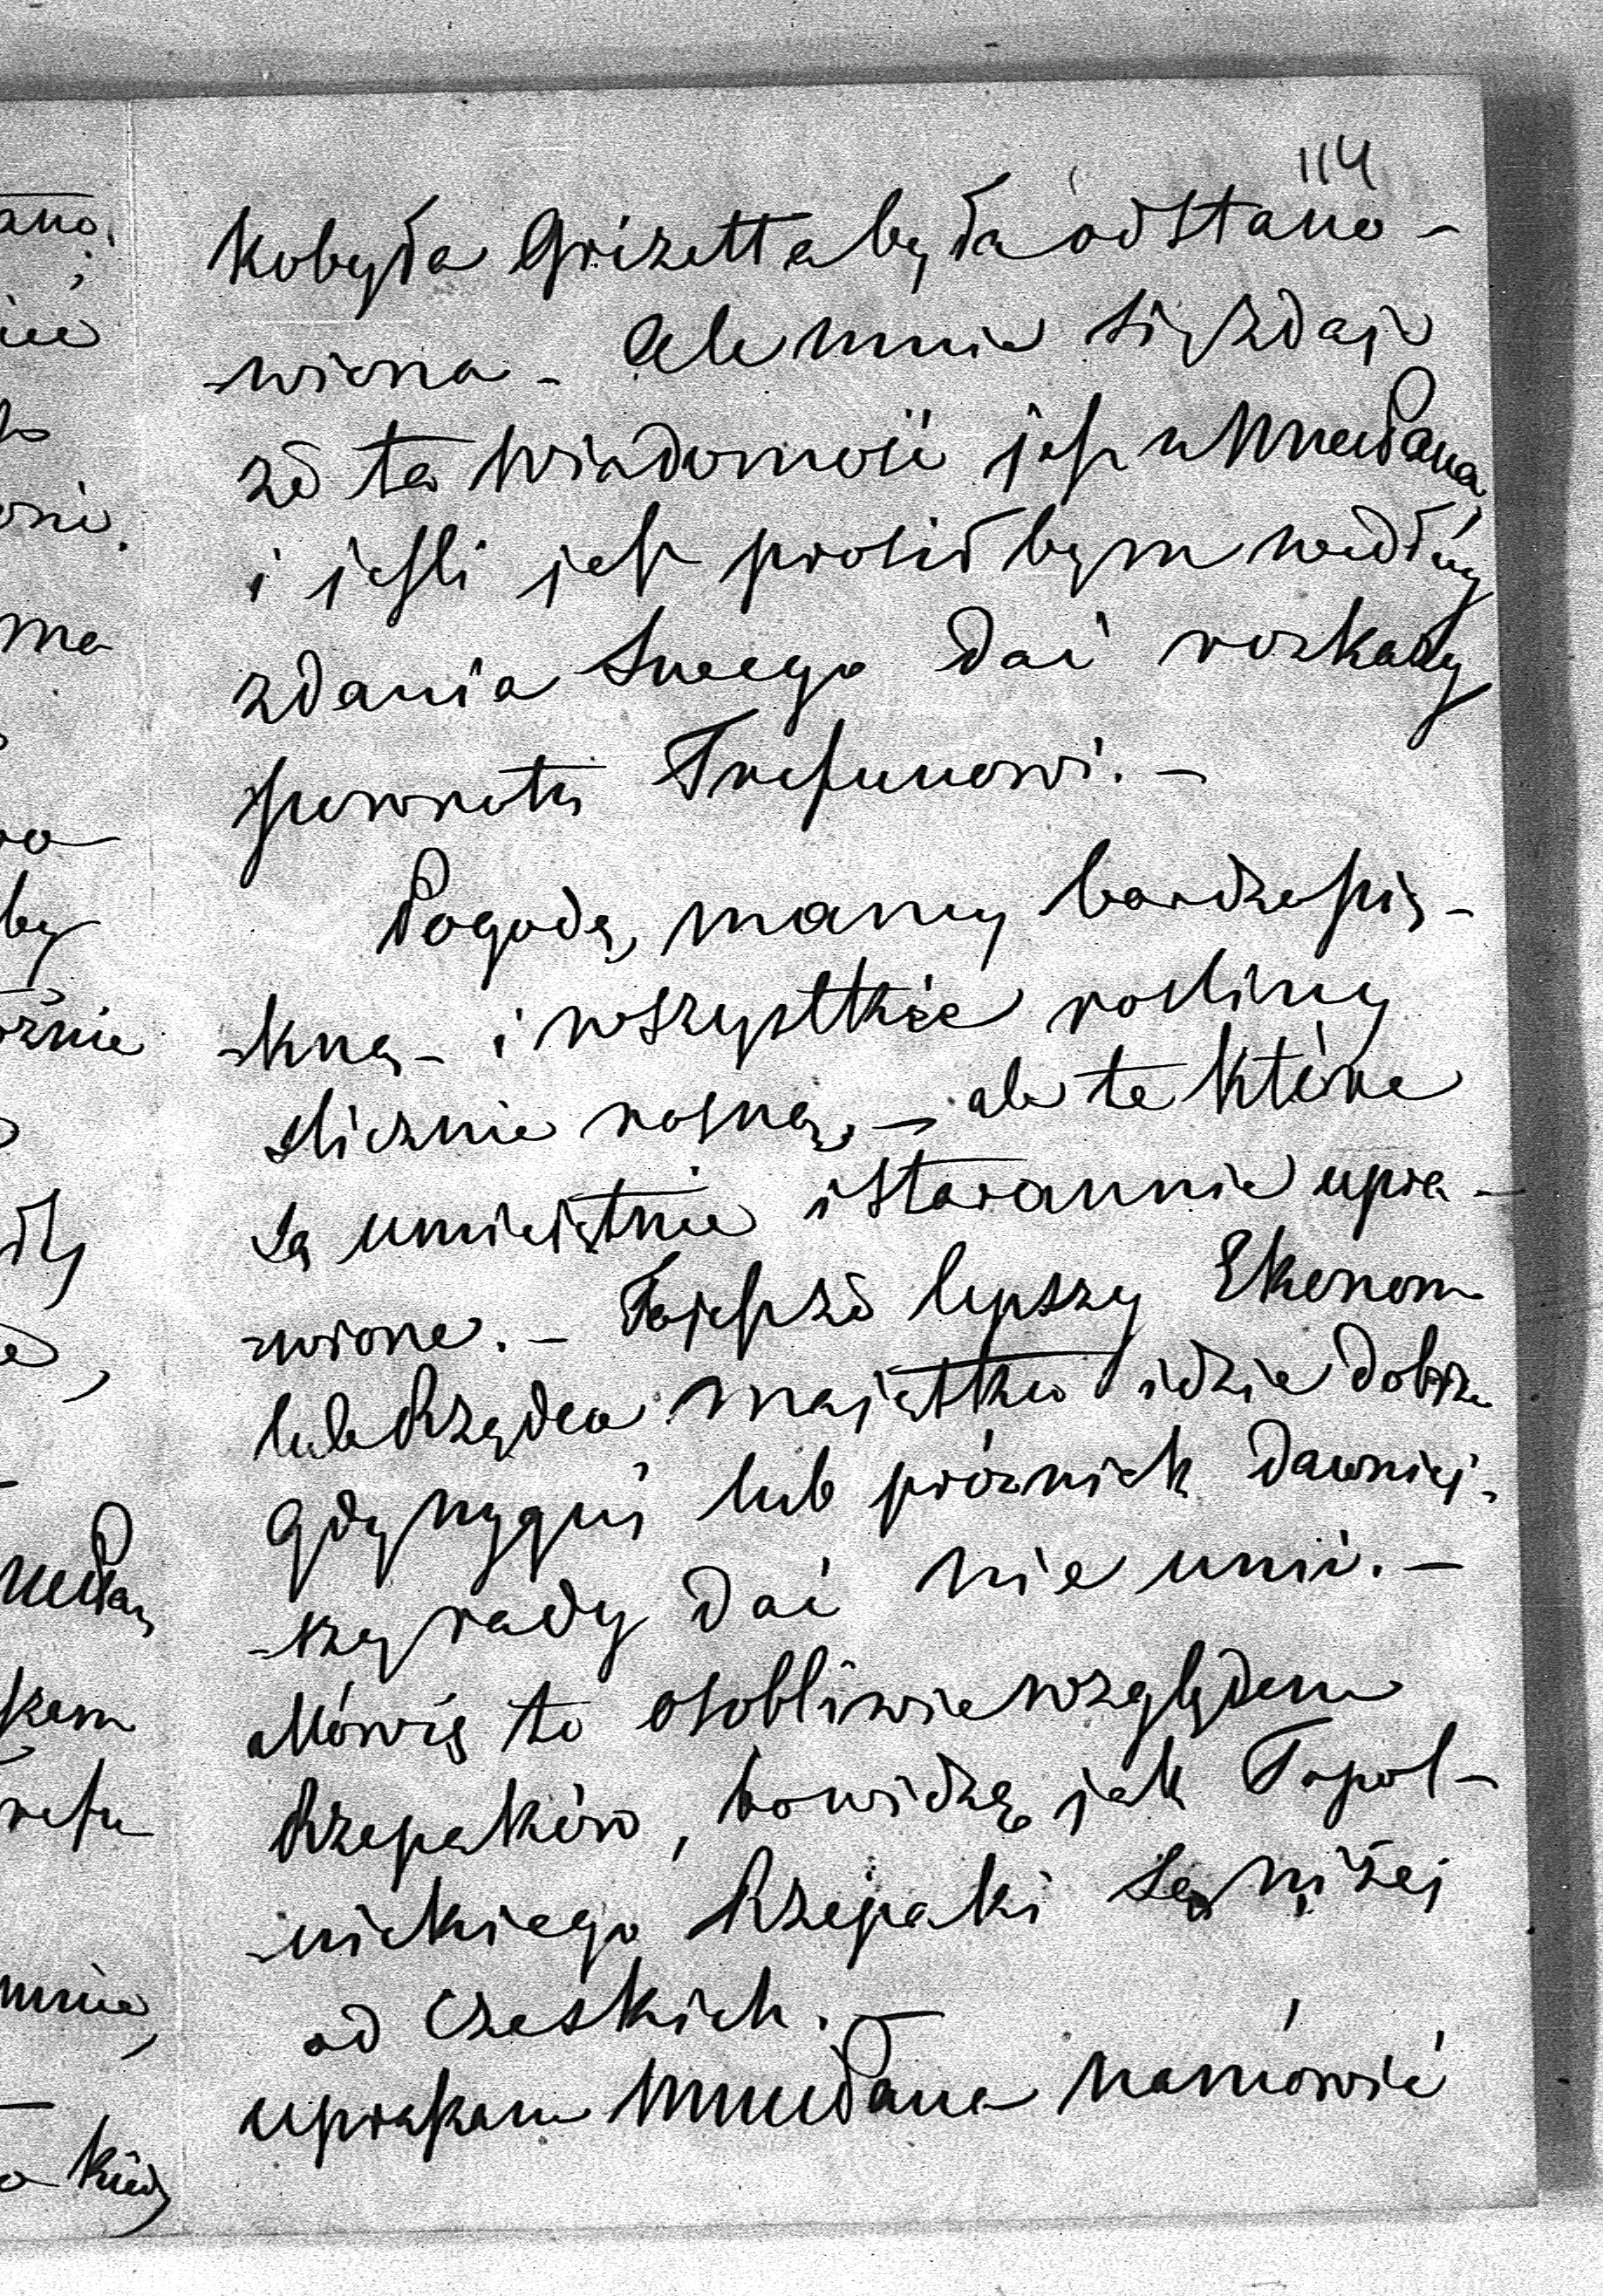 114
Kobyła Grizetta była odstano-
-wiona - Ale mnie się zdaje
że ta wiadomość jest u WneuPana
i jeśli jest prosiłbym według
zdania Swego dać rozkazy
powrotu Trefunowi. -
Pogodę mamy bardzo pię-
-kną - i wszystkie rosliny
slicznie rosną, - ale te które
są umiejętnie i starannie upra-
-wione. - To jest że lepszy Ekonom
lub Rządca majątku idzie dobrze
Gdy lub próżniak dawniej-
-szy rady dać nie umie. -
Mówię to osobliwie względem
Rzepaków, bo widzę jak Topol-
-nickiego Rzepaki są niżej
od Czeskich. -
upraszam WneuPana namówić
ano.
ma
by
kiedy